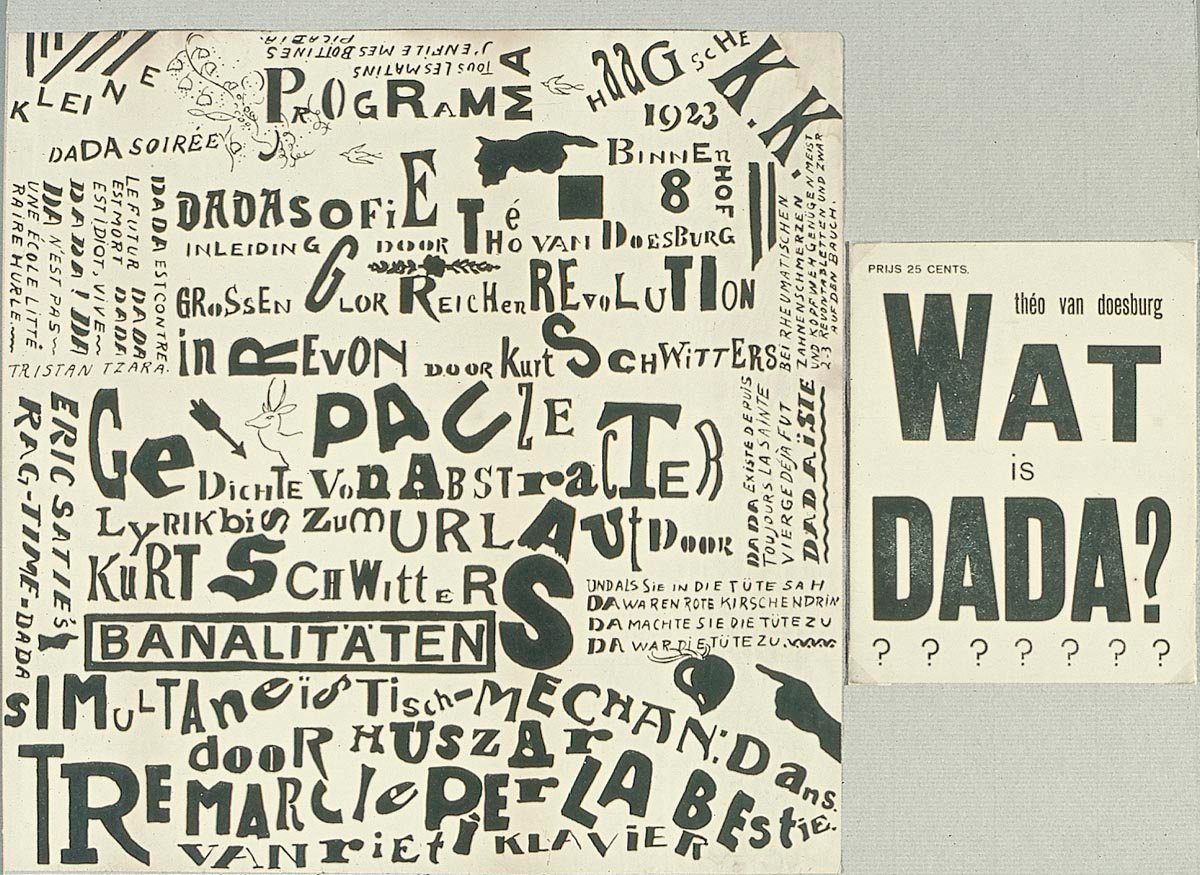 KLEINE
DADA SOIRÉE
TOUS LES MATINS
J'ENFILE MES BOTTINES
PICABIA.
PROGRAMMA
HAAGSCHE K.K.
1923
BINNENHOF
8
DADASOFIE THÉO VAN DOESBURG
INLEIDING DOOR
GROSSEN GLORREICHEN REVOLUTION
in REVON DOOR Kurt SCHWITTERS
DADA EST CONTRE
LE FUTUR DADA
EST MORT DADA
EST IDIOT, VIVE
DADA! DADA
DA N'EST PAS
UNE ÉCOLE LITTÉ
RAIRE HURLE
TRISTAN TZARA.
BEI RHEUMATISCHEN
ZAHNENSCHMERZEN
UND KOPFWEH GENÜGEN MEIST
2-3 REVONTABLETTEN UND ZWAR
AUF DEN BAUCH.
PAUZE
GEDICHTE VON ABSTRACTER
LYRIK bis ZUM URLAUT DOOR
KURT SCHWittERS
ERIC SATIE'S
RAG-TIME=DADA
DADA EXISTE DEPUIS
TOUJOURS LA SAINTE
VIERGE DÉJÀ FUT
DADAÏSIE
UND ALS SIE IN DIE TÜTE SAH
DA WAREN ROTE KIRSCHEN DRIN
DA MACHTE SIE DIE TÜTE ZU
DA WAR DIE TÜTE ZU.
BANALITÄTEN
SIMULTANEÏSTisch-MECHAN: Dans.
door HUSZAr
TRE MARCIe PEr LA BEstie.
VAN rieti KLAVIER
PRIJS 25 CENTS.
théo van doesburg
WAT
iS
DADA?
? ? ? ? ? ? ?